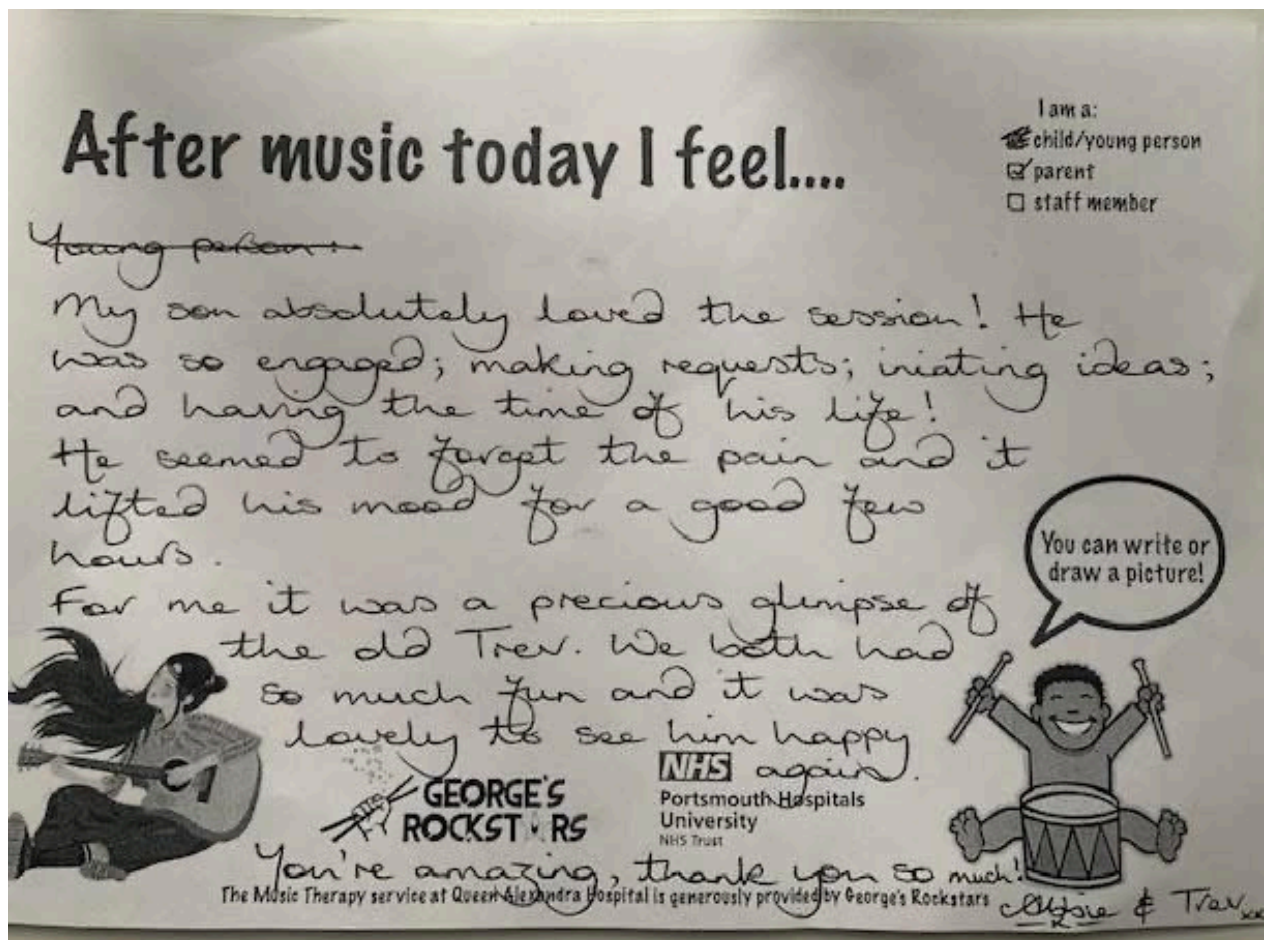 After music today I feel....
I am a:
child/young person
parent
staff member
Young person:
My son absolutely loved the session! He
was so engaged; making requests; iniating ideas;
and having the time of his life!
He seemed to forget the pain and it
lifted his mood for a good few
hours.
For me it was a precious glimpse of
the old Trev. We both had
so much fun and it was
lovely to see him happy
again.
You can write or
draw a picture!
GEORGE'S
ROCKSTARS
NHS
Portsmouth Hospitals
University
NHS Trust
You're amazing, thank you so much!
The Music Therapy service at Queen Alexandra Hospital is generously provided by George's Rockstars
& Trev xx